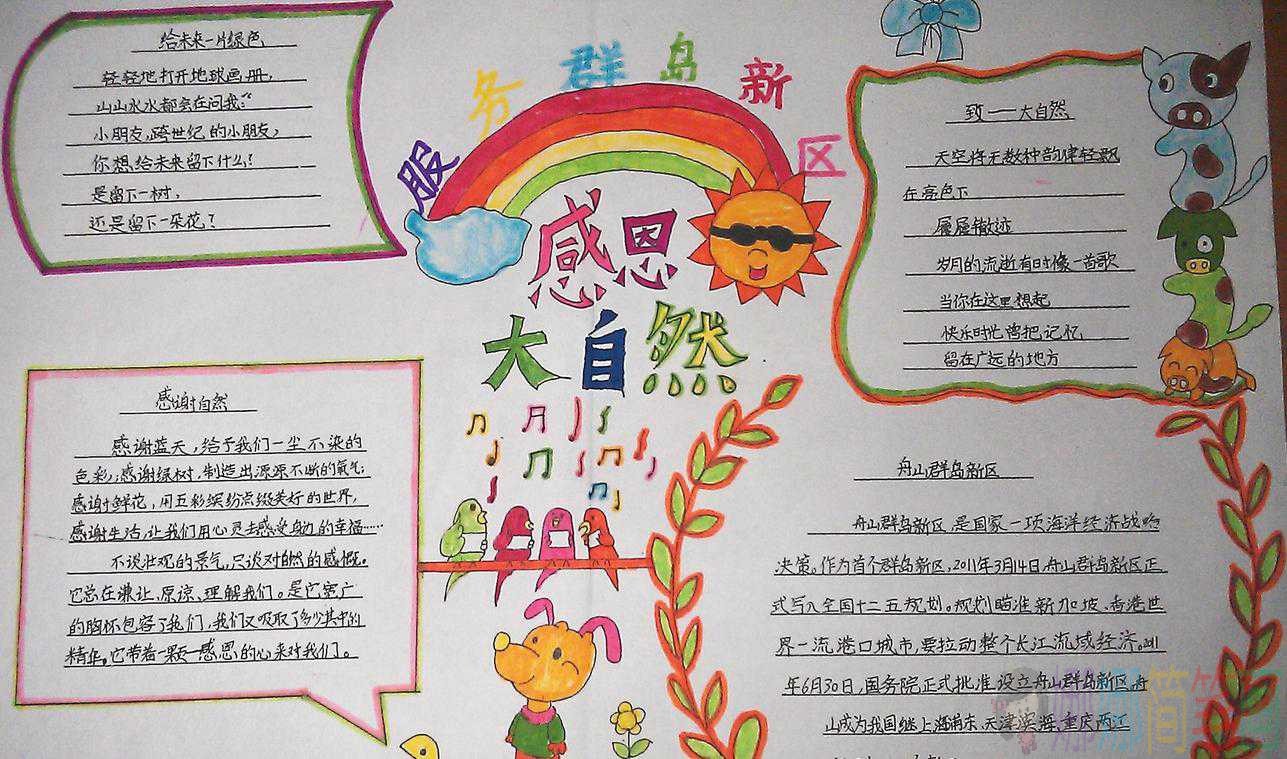 服务群岛新区
感恩
大自然
给未来一片绿色
轻轻地打开地球画册，
山山水水都会在问我：“
小朋友，跨世纪的小朋友，
你想给未来留下什么？
是留下一树，
还是留下一朵花？
致——大自然
天空将无数种韵律轻飘
在亮色下
层层辙迹
岁月的流逝有时像一首歌
当你在这里想起
快乐时忙曾把记忆
留在广远的地方
感谢自然
感谢蓝天，给予我们一尘不染的
色彩；感谢绿树，制造出源源不断的氧气；
感谢鲜花，用五彩缤纷点缀美好的世界，
感谢生活，让我们用心灵去感受身边的幸福……
不谈壮观的景气，只谈对自然的感慨。
它总在谦让、原谅、理解我们。是它宽广
的胸怀包容了我们，我们又吸取了多少其中的
精华。它带着一颗感恩的心来对我们。
舟山群岛新区
舟山群岛新区是国家一项海洋经济战略
决策。作为首个群岛新区，2011年3月14日，舟山群岛新区正
式写入全国十二五规划。规划瞄准新加坡、香港世
界一流港口城市，要拉动整个长江流域经济。2011
年6月30日，国务院正式批准设立舟山群岛新区，舟
山成为我国继上海浦东、天津滨海、重庆两江